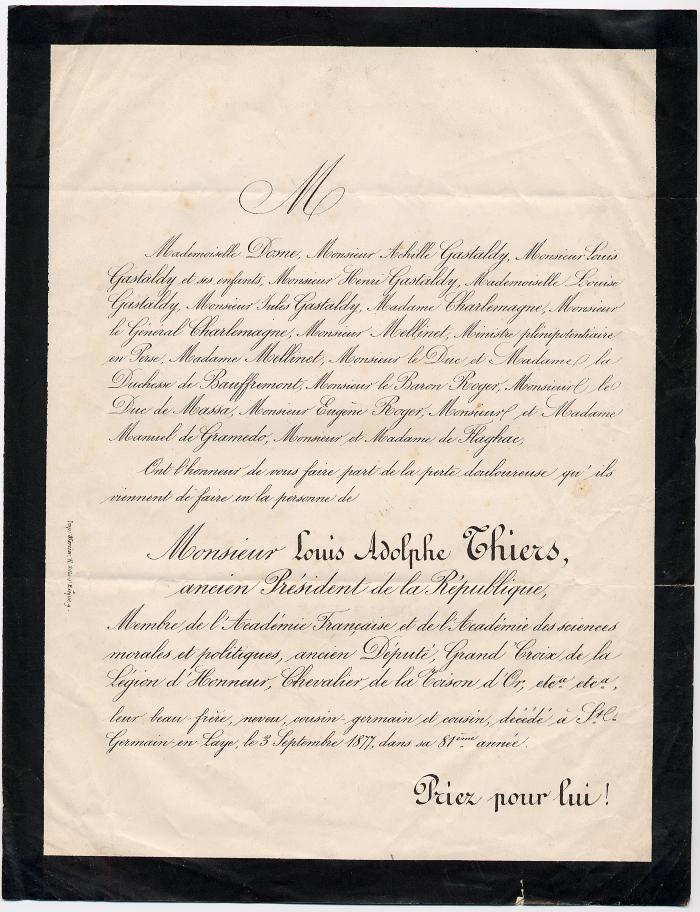 M
Mademoiselle Dosne, Monsieur Achille Gastaldy, Monsieur Louis
Gastaldy et ses enfants, Monsieur Henri Gastaldy, Mademoiselle Louise
Gastaldy, Monsieur Jules Gastaldy, Madame Charlemagne, Monsieur
le Général Charlemagne, Monsieur Mellinet, Ministre plénipotentiaire
en Perse, Madame Mellinet, Monsieur le Duc et Madame la
Duchesse de Bauffremont, Monsieur le Baron Roger, Monsieur le
Duc de Massa, Monsieur Eugène Roger, Monsieur et Madame
Manuel de Gramedo, Monsieur et Madame de Flaghac,
Ont l'honneur de vous faire part de la perte douloureuse qu'ils
viennent de faire en la personne de
Monsieur Louis Adolphe Thiers,
ancien Président de la République,
Membre de l'Académie Française et de l'Académie des sciences
morales et politiques, ancien Député, Grand Croix de la
Légion d'Honneur, Chevalier de la Toison d'Or, etca etca,
leur beau-frère, neveu, cousin-germain et cousin, décédé à St
Germain-en Laye, le 3 Septembre 1877, dans sa 81ème année.
Priez pour lui!